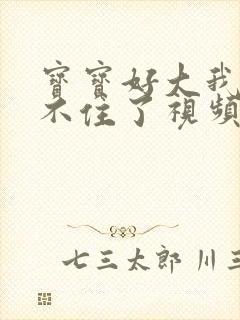 寶寶好大我
不住了視頻
七三太郎 川三